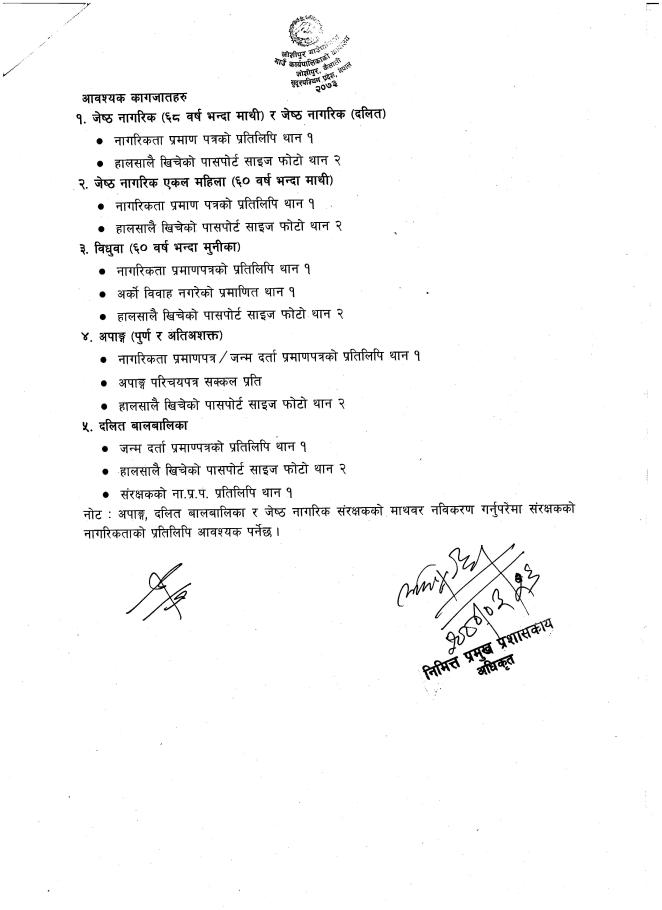 जोशीपुर गाउँपालिका
गाउँ कार्यपालिकाको कार्यालय
जोशीपुर, कैलाली
सुदूरपश्चिम प्रदेश, नेपाल
२०७३
आवश्यक कागजातहरु
१. जेष्ठ नागरिक (६८ वर्ष भन्दा माथी) र जेष्ठ नागरिक (दलित)
• नागरिकता प्रमाण पत्रको प्रतिलिपि थान १
• हालसालै खिचेको पासपोर्ट साइज फोटो थान २
२. जेष्ठ नागरिक एकल महिला (६० वर्ष भन्दा माथी)
• नागरिकता प्रमाण पत्रको प्रतिलिपि थान १
• हालसालै खिचेको पासपोर्ट साइज फोटो थान २
३. विधुवा (६० वर्ष भन्दा मुनीका)
• नागरिकता प्रमाणपत्रको प्रतिलिपि थान १
• अर्को विवाह नगरेको प्रमाणित थान १
• हालसालै खिचेको पासपोर्ट साइज फोटो थान २
४. अपाङ्ग (पुर्ण र अतिअशक्त)
• नागरिकता प्रमाणपत्र / जन्म दर्ता प्रमाणपत्रको प्रतिलिपि थान १
• अपाङ्ग परिचयपत्र सक्कल प्रति
• हालसालै खिचेको पासपोर्ट साइज फोटो थान २
५. दलित बालबालिका
• जन्म दर्ता प्रमाणपत्रको प्रतिलिपि थान १
• हालसालै खिचेको पासपोर्ट साइज फोटो थान २
• संरक्षकको ना.प्र.प. प्रतिलिपि थान १
नोट : अपाङ्ग, दलित बालबालिका र जेष्ठ नागरिक संरक्षकको माथवर नविकरण गर्नुपरेमा संरक्षकको
नागरिकताको प्रतिलिपि आवश्यक पर्नेछ ।
निमित्त प्रमुख प्रशासकीय
अधिकृत